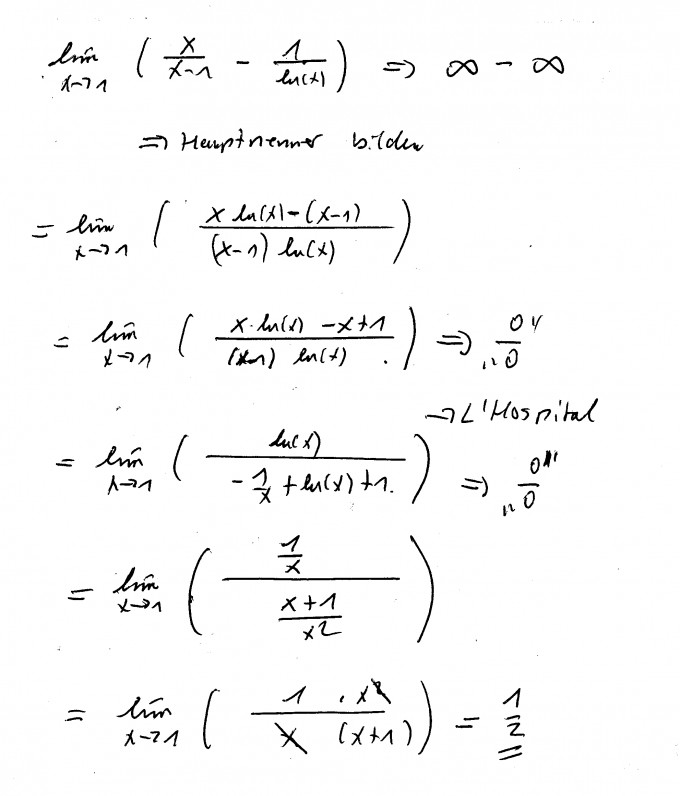 lim x→1 ( x/(x-1) - 1/ln(x) ) ⇒ ∞ - ∞
⇒ Hauptnenner bilden
= lim x→1 ( (x ln(x) - (x-1)) / ((x-1) ln(x)) )
= lim x→1 ( (x·ln(x) - x + 1) / ((x-1) ln(x)) ) ⇒ „0/0"
→ L'Hospital
= lim x→1 ( ln(x) / (-1/x + ln(x) + 1) ) ⇒ „0/0"
= lim x→1 ( (1/x) / ((x+1)/x²) )
= lim x→1 ( (1 · x²) / (x (x+1)) ) = 1/2